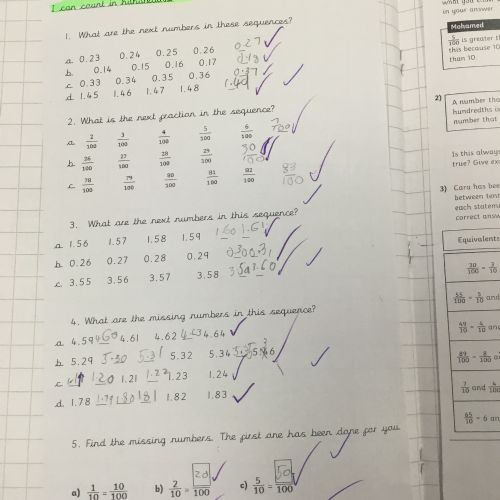 I can count in hundredths
1. What are the next numbers in these sequences?
a. 0.23 0.24 0.25 0.26 0.27
b. 0.14 0.15 0.16 0.17 0.18
c. 0.33 0.34 0.35 0.36 0.37
d. 1.45 1.46 1.47 1.48
2. What is the next fraction in the sequence?
a. 2/100 3/100 4/100 5/100 6/100 7/100
b. 26/100 27/100 28/100 29/100 30/100
c. 78/100 79/100 80/100 81/100 82/100 83/100
3. What are the next numbers in this sequence?
a. 1.56 1.57 1.58 1.59 1.60 1.61
b. 0.26 0.27 0.28 0.29 0.30 0.31
c. 3.55 3.56 3.57 3.58 3.59 3.60
4. What are the missing numbers in this sequence?
a. 4.59 4.60 4.61 4.62 4.63 4.64
b. 5.29 5.30 5.31 5.32 5.34
c. 1.20 1.21 1.22 1.23 1.24
d. 1.78 1.79 1.80 1.81 1.82 1.83
5. Find the missing numbers. The first one has been done for you
a) 1/10 = 10/100 b) 2/10 = 20/100 c) 5/10 = 50/100
in your answer
Mohamed
5/100 is greater th
this because 10
than 10.
2)
A number tha
hundredths is
number that
Is this alway
true? Give ex
3) Cara has bee
between tent
each stateme
correct answ
Equivalents
30/100 = 3/10
55/100 = 5/10 and
49/10 = 4/10 and
89/100 = 8/10 a
7/10 and 4/100
65/10 = 6 an